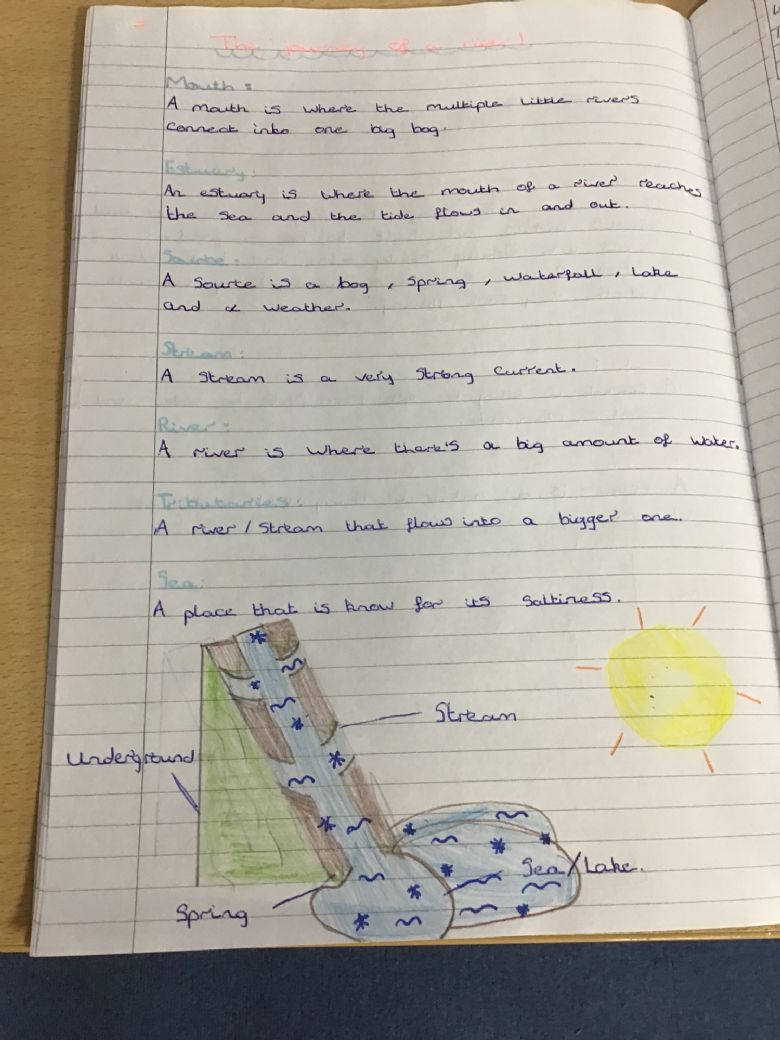 The journey of a river!
Mouth:
A mouth is where the multiple little rivers
connect into one big bog.
Estuary:
An estuary is where the mouth of a river reaches
the sea and the tide flows in and out.
Source:
A source is a bog, spring, waterfall, lake
and a weather.
Stream:
A stream is a very strong current.
River:
A river is where there's a big amount of water.
Tributaries:
A river/stream that flows into a bigger one.
Sea:
A place that is know for its saltiness.
Stream
Underground
Sea/Lake.
Spring